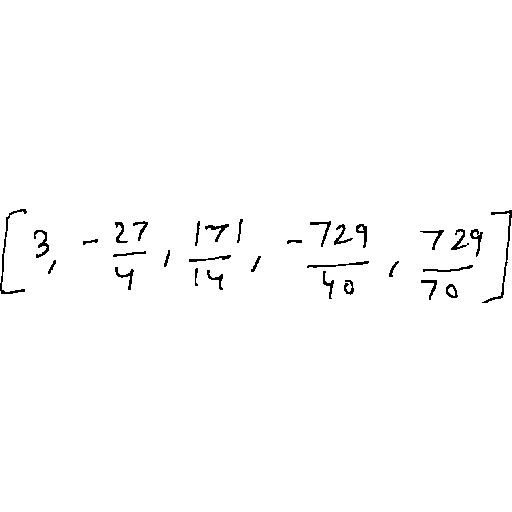 [3, -27/4, 171/14, -729/40, 729/70]